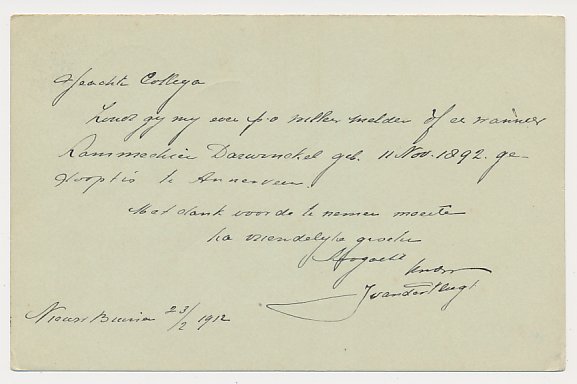 Geachte Collega
Zoudt gij mij even p.o. willen melden of en wanneer
Lammechien Darwinckel geb. 11 Nov. 1892. ge-
doopt is te Annerveen.
Met dank voor de te nemen moeite
na vriendelijke groeten
Hoogacht
JvanderVlugt
Nieuw Buinen 23/2 1912